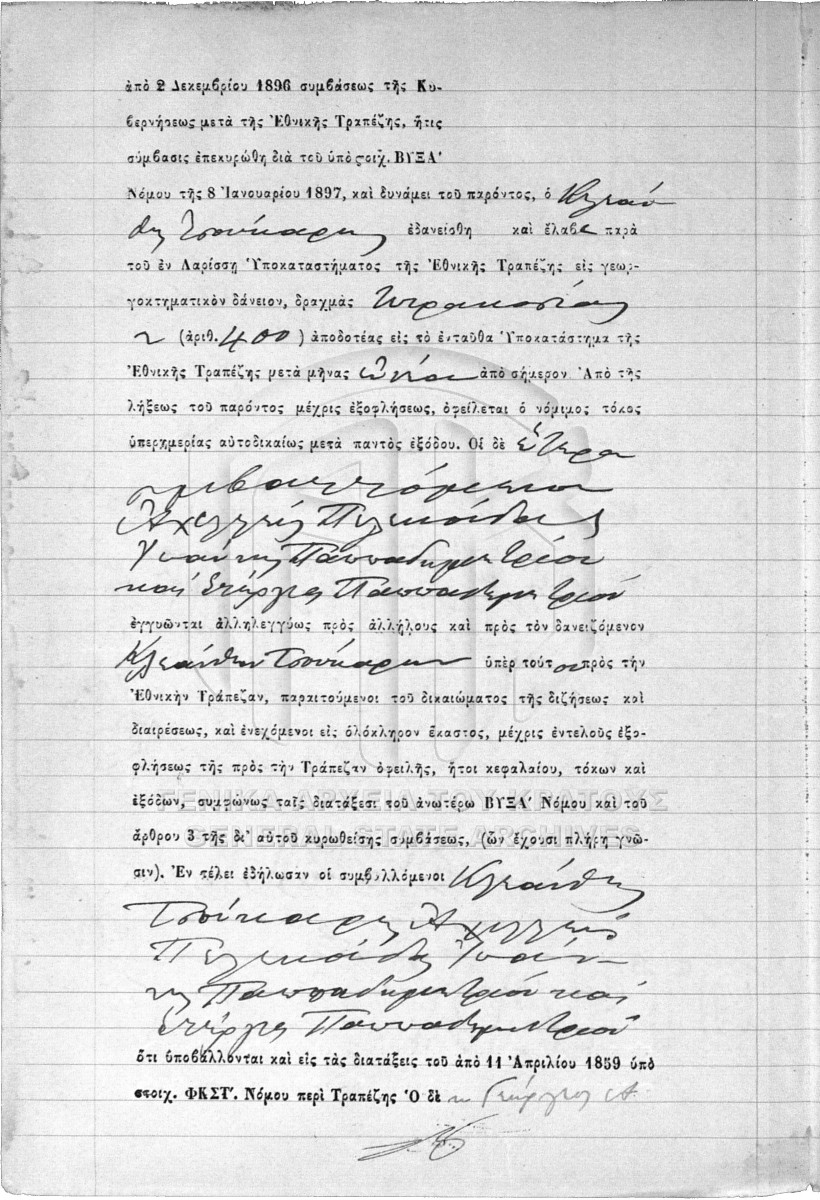 ἀπὸ 2 Δεκεμβρίου 1896 συμβάσεως τῆς Κυ-
βερνήσεως μετὰ τῆς Ἐθνικῆς Τραπέζης, ἥτις
σύμβασις ἐπεκυρώθη διὰ τοῦ ὑπὸ στοιχ. ΒΥΞΑ'
Νόμου τῆς 8 Ἰανουαρίου 1897, καὶ δυνάμει τοῦ παρόντος, ὁ Κλεάν
θης Τσούκαρης ἐδανείσθη καὶ ἔλαβε παρὰ
τοῦ ἐν Λαρίσσῃ Ὑποκαταστήματος τῆς Ἐθνικῆς Τραπέζης εἰς γεωρ-
γοκτηματικὸν δάνειον, δραχμὰς τετρακοσίας
(ἀριθ. 400) ἀποδοτέας εἰς τὸ ἐνταῦθα Ὑποκατάστημα τῆς
Ἐθνικῆς Τραπέζης μετὰ μῆνας ἐννέα ἀπὸ σήμερον Ἀπὸ τῆς
λήξεως τοῦ παρόντος μέχρις ἐξοφλήσεως, ὀφείλεται ὁ νόμιμος τόκος
ὑπερημερίας αὐτοδικαίως μετὰ παντὸς ἐξόδου. Οἱ δὲ ἕτεροι
συμβαλλόμενοι
Ἀχιλλεὺς Πελεκούδας
Ἰωάννης Παππαδημητρίου
καὶ Στέργιος Παππαδημητρίου
ἐγγυῶνται ἀλληλεγγύως πρὸς ἀλλήλους καὶ πρὸς τὸν δανειζόμενον
Κλεάνθην Τσούκαρην ὑπὲρ τούτου πρὸς τὴν
Ἐθνικὴν Τράπεζαν, παραιτούμενοι τοῦ δικαιώματος τῆς διζήσεως καὶ
διαιρέσεως, καὶ ἐνεχόμενοι εἰς ὁλόκληρον ἕκαστος, μέχρις ἐντελοῦς ἐξο-
φλήσεως τῆς πρὸς τὴν Τράπεζαν ὀφειλῆς, ἤτοι κεφαλαίου, τόκων καὶ
ἐξόδων, συμφώνως ταῖς διατάξεσι τοῦ ἀνωτέρω ΒΥΞΑ' Νόμου καὶ τοῦ
ΓΕΝΙΚΑ ΑΡΧΕΙΑ ΤΟΥ ΚΡΑΤΟΥΣ
ἄρθρου 3 τῆς δι' αὐτοῦ κυρωθείσης συμβάσεως, (ὧν ἔχουσι πλήρη γνῶ-
GENERAL STATE ARCHIVES
σιν). Ἐν τέλει ἐδήλωσαν οἱ συμβαλλόμενοι Κλεάνθης
Τσούκαρης Ἀχιλλεὺς
Πελεκούδας Ἰωάν-
νης Παππαδημητρίου καὶ
Στέργιος Παππαδημητρίου
ὅτι ὑποβάλλονται καὶ εἰς τὰς διατάξεις τοῦ ἀπὸ 11 Ἀπριλίου 1859 ὑπὸ
στοιχ. ΦΚΣΤ'. Νόμου περὶ Τραπέζης Ὁ δὲ κ Γεώργιος Α.